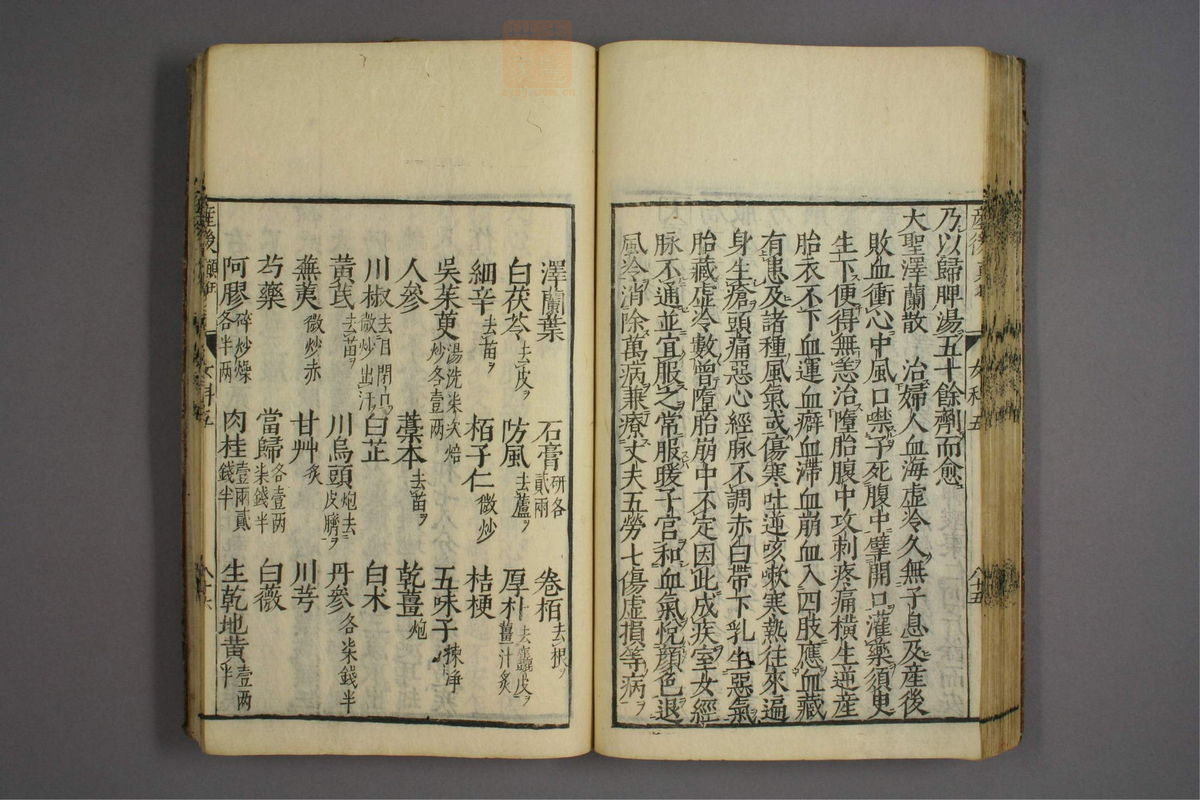 乃以歸脾湯五十餘劑而愈
大聖澤蘭散 治婦人血海虛冷久無子息及產後
敗血衝心中風口噤子死腹中擘開口灌藥須臾
生下便得無恙治墮胎腹中攻刺疼痛橫生逆產
胎衣不下血運血癖血滯血崩血入四肢應血藏
有患及諸種風氣或傷寒吐逆咳嗽寒熱往來遍
身生瘡頭痛惡心經脉不調赤白帶下乳生惡氣
胎藏虛冷數曾墮胎崩中不定因此成疾室女經
脉不通並宜服之常服暖子宮和血氣悅顏色退
風冷消除萬病兼療丈夫五勞七傷虛損等病
澤蘭葉 石膏研各貳兩 卷栢去根
白茯苓去皮 防風去蘆 厚朴去麤皮薑汁炙
細辛去苗 栢子仁微炒 桔梗
吳茱萸湯洗柒次焙炒各壹兩 藁本去苗 五味子揀凈
人參 乾薑炮
川椒去目閉口微炒出汗 白芷 白术
黃芪去苗 川烏頭炮去皮臍 丹參各柒錢半
蕪荑微炒赤 甘艸炙 川芎
芍藥 當歸各壹兩柒錢半 白薇
阿膠碎炒燥各半兩 肉桂壹兩貳錢半 生乾地黃壹兩半
產後
女科五
八十六
產後
女科五
八十五